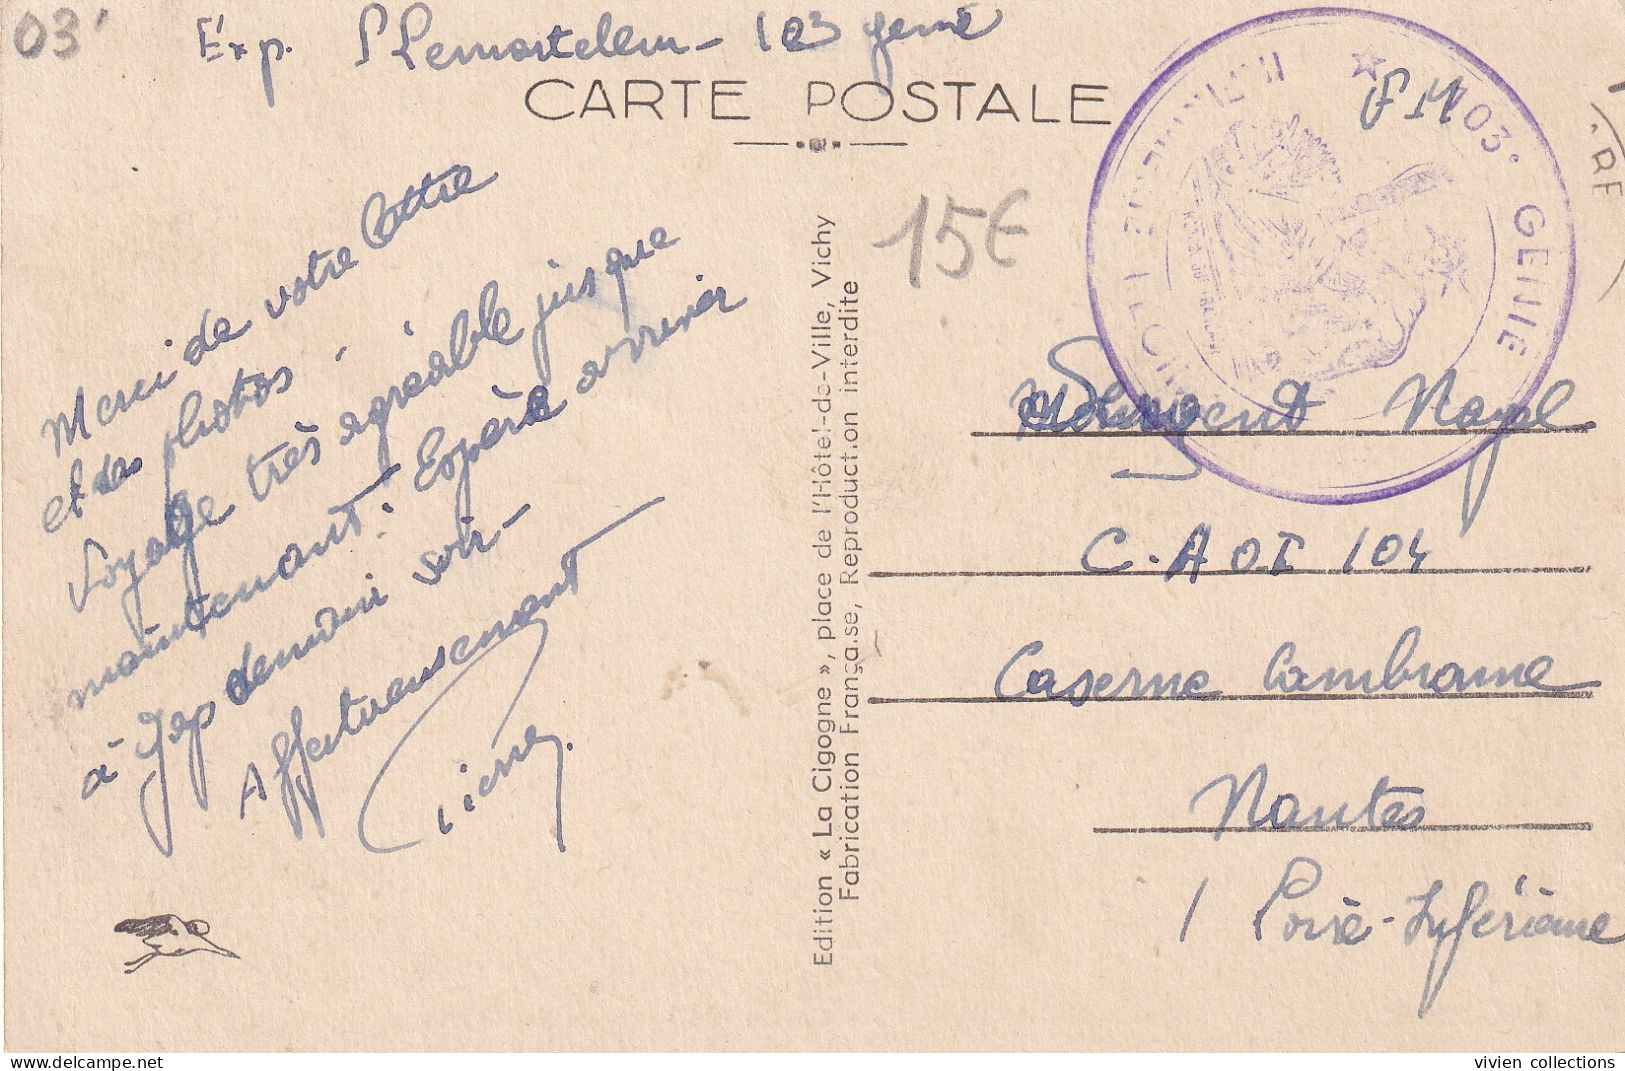 03'
Exp. P Lemartelem - 103 génie
CARTE POSTALE
FM
★ 103e GENIE
15€
Merci de votre lettre
et des photos -
Voyage très agréable jusque
maintenant. Espère arriver
à demain soir -
Affectueusement
Pierre.
Edition « La Cigogne », place de l'Hôtel-de-Ville, Vichy
Fabrication Française, Reproduction interdite
C.A O.I 104
Caserne Cambronne
Nantes
/ Loire-Inférieure
vivien collections